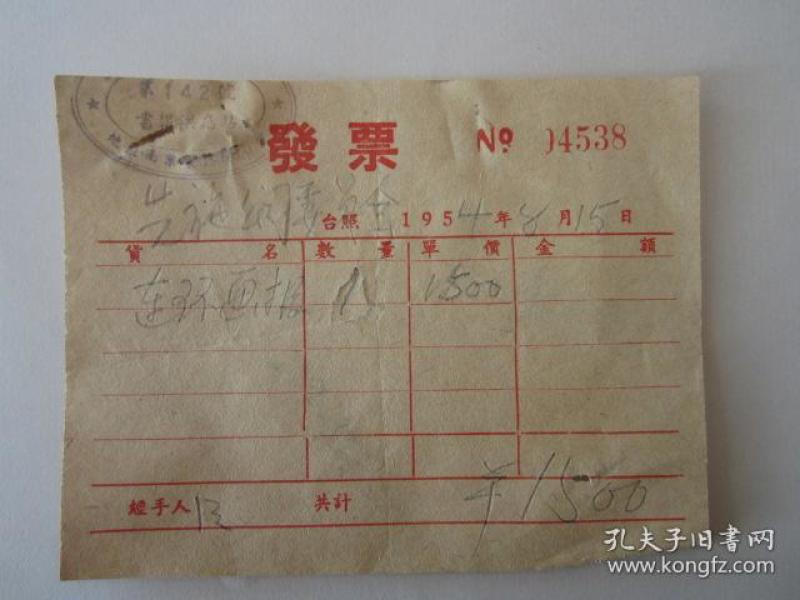 第142
書報
發票 № 04538
台照 1954年8月15日
貨名 數量 單價 金額
連环画报 1 1500
經手人 共計 ￥1500
孔夫子旧书网
www.kongfz.com